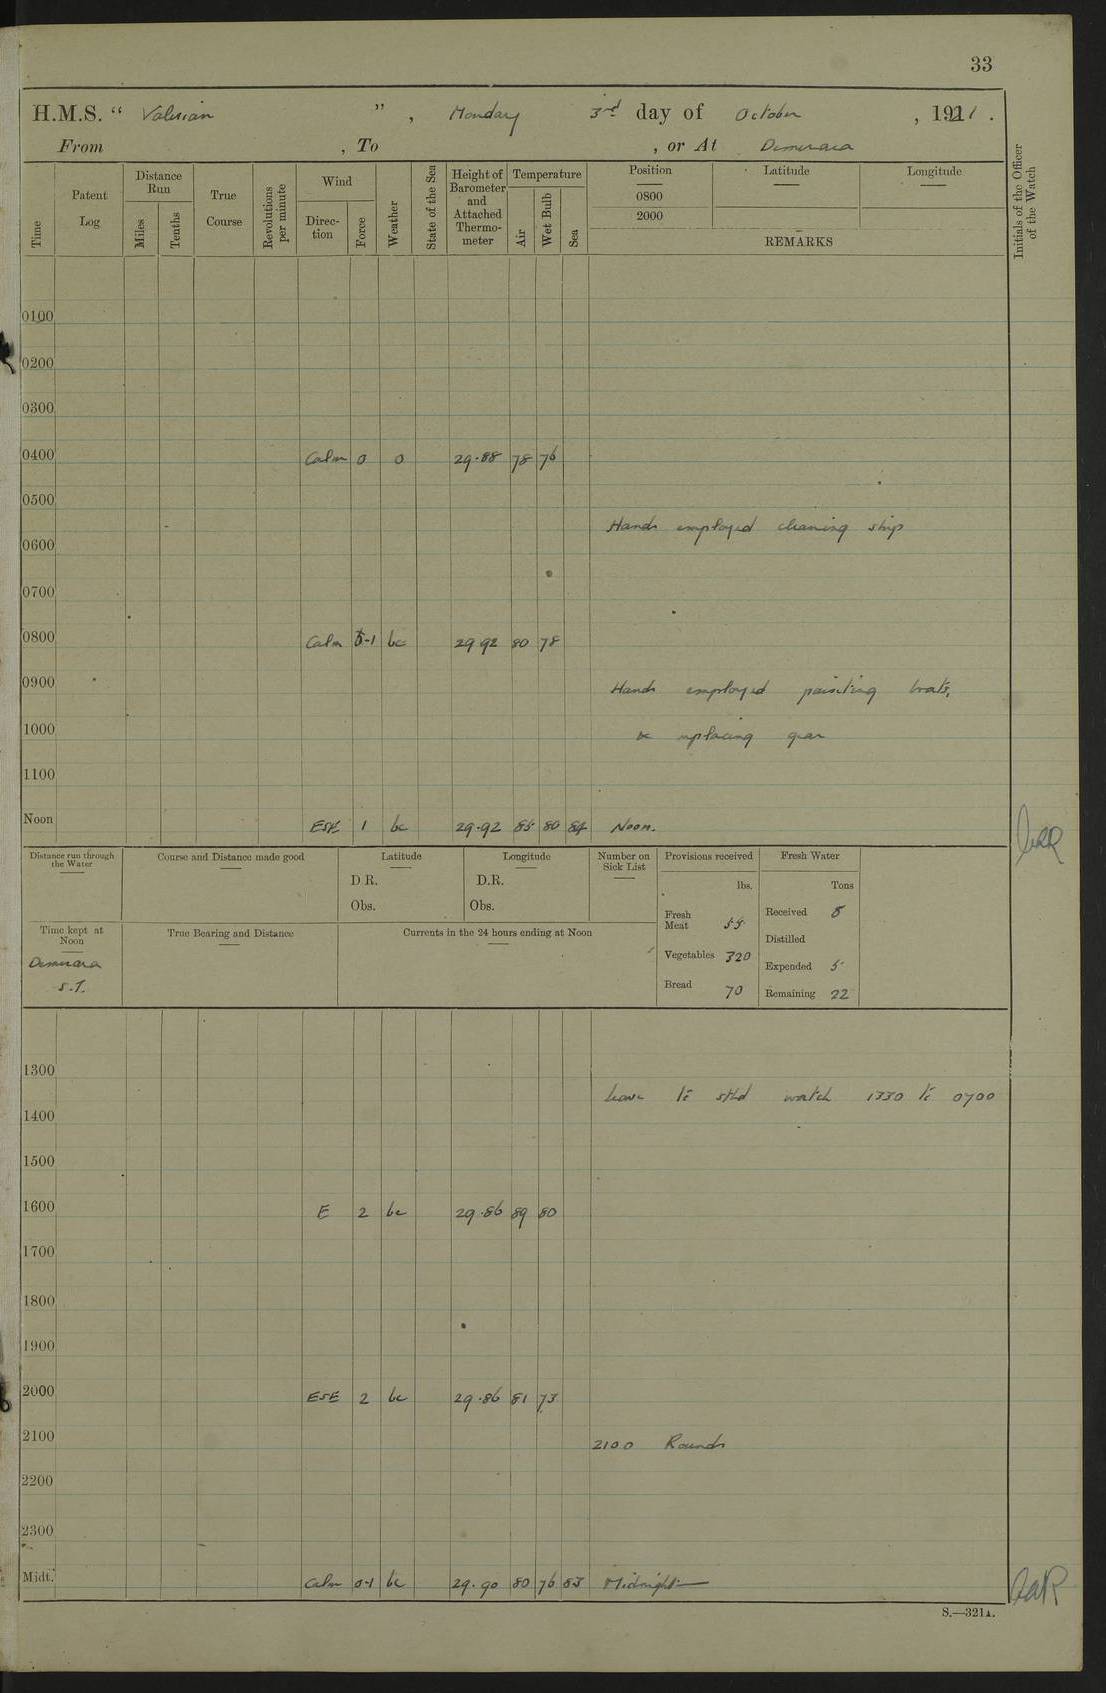 33
H.M.S. “ Valerian ” , Monday 3rd day of October , 1921 .
From , To , or At Demerara
Time
Patent Log
Distance Run
Miles
Tenths
True Course
Revolutions per minute
Wind
Direc-tion
Force
Weather
State of the Sea
Height of Barometer and Attached Thermo-meter
Temperature
Air
Wet Bulb
Sea
Position
0800
2000
Latitude
Longitude
REMARKS
Initials of the Officer of the Watch
0100
0200
0300
0400 Calm 0 0 29.88 78 76
0500
Hands employed cleaning ship
0600
0700
0800 Calm 0-1 bc 29 92 80 78
0900 Hands employed painting boats,
1000 & replacing gear
1100
Noon ESE 1 bc 29.92 85 80 84 Noon.
Distance run through the Water
Course and Distance made good
Latitude
D R.
Obs.
Longitude
D.R.
Obs.
Number on Sick List
Provisions received
lbs.
Fresh Meat 55
Vegetables 320
Bread 70
Fresh Water
Tons
Received 8
Distilled
Expended 5
Remaining 22
Time kept at Noon
Demerara
S.T.
True Bearing and Distance
Currents in the 24 hours ending at Noon
1300
Leave to stbd watch 1330 to 0700
1400
1500
1600 E 2 bc 29.86 89 80
1700
1800
1900
2000 ESE 2 bc 29.86 81 73
2100 2100 Rounds
2200
2300
Midt. Calm 0-1 bc 29.90 80 76 83 Midnight
S.—321A.